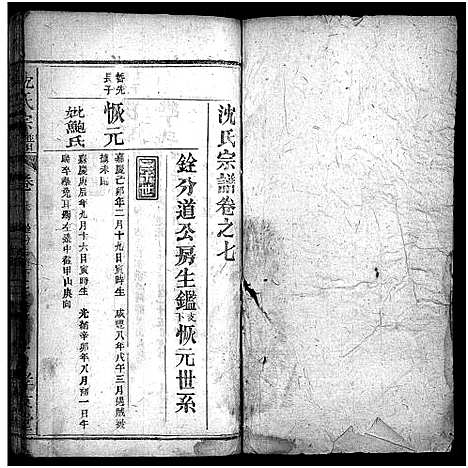 沈氏宗譜卷之七
銓分道公房生鑑支下恢元世系
三十世
哲先長子
恢元
嘉慶 卯年二月十九日寅時生 咸豐八年八月三月遇賊
據未
妣鮑氏
嘉慶庚辰年九月十六日亥時生 光緒辛卯年八月初一日午
時卒 兔耳 甲山庚向
沈氏宗譜 卷